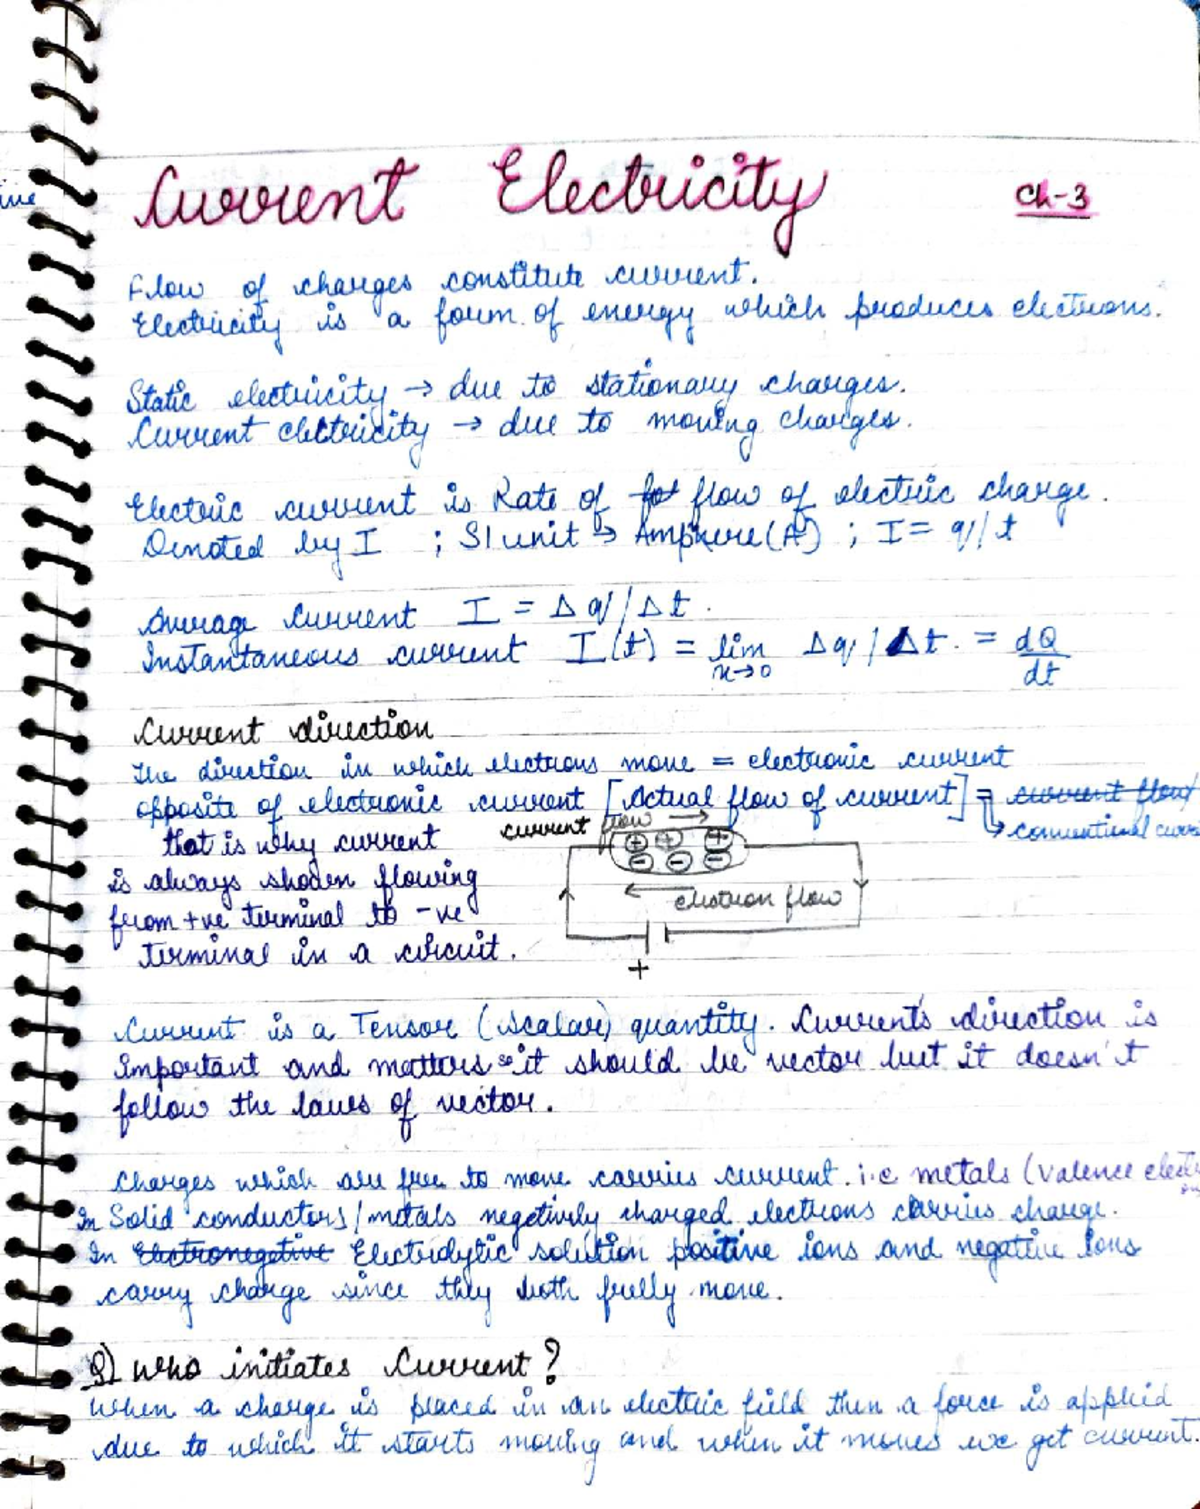 Current Electricity Ch-3
Flow of charges constitute current.
Electricity is a form of energy which produces electrons.
Static electricity → due to stationary charges.
Current electricity → due to moving charges.
Electric current is Rate of flow of electric charge.
Denoted by I ; SI unit → Amphere(A) ; I = q/t
Average current I = Δq/Δt.
Instantaneous current I(t) = lim n→0 Δq/Δt. = dQ/dt
Current direction
The direction in which electrons move = electronic current
opposite of electronic current [Actual flow of current] = current flow
↳ conventional curr
that is why current
is always shown flowing
from +ve terminal to -ve
terminal in a circuit.
current flow →
+ + +
- - -
← electron flow
+
Current is a Tensor (scalar) quantity. Current's direction is
important and matters so it should be vector but it doesn't
follow the laws of vector.
Charges which are free to move carries current. i.e metals (valence elect
In Solid conductors/metals negetively charged electrons carries charge.
In Electronegative Electrolytic solution positive ions and negative ions
carry charge since they both freely move.
Q) Who initiates Current?
When a charge is placed in an electric field then a force is applied
due to which it starts moving and when it moves we get current.